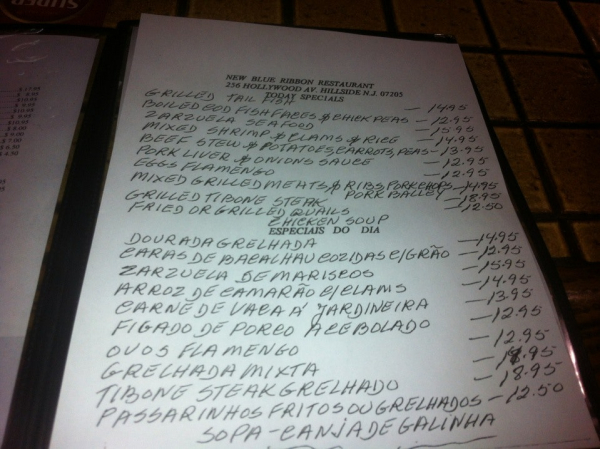 SUPER
NEW BLUE RIBBON RESTAURANT
256 HOLLYWOOD AV. HILLSIDE N.J. 07205
TODAY SPECIALS
GRILLED TAIL FISH — 14.95
BOILED COD FISH FACES & CHICK PEAS — 12.95
ZARZUELA SEAFOOD — 15.95
MIXED SHRIMP & CLAMS & RICE — 14.95
BEEF STEW & POTATOES, CARROTS, PEAS — 13.95
PORK LIVER & ONIONS SAUCE — 12.95
EGGS FLAMENGO — 12.95
MIXED GRILLED MEATS & RIBS, PORKCHOPS — 14.95
PORK BALLEY
GRILLED TIBONE STEAK — 18.95
FRIED OR GRILLED QUAILS — 12.50
CHICKEN SOUP
ESPECIAIS DO DIA
DOURADA GRELHADA — 14.95
CARAS DE BACALHAU COZIDAS C/GRÃO — 12.95
ZARZUELA DE MARISCOS — 15.95
ARROZ DE CAMARÃO C/CLAMS — 14.95
CARNE DE VACA A' JARDINEIRA — 13.95
FIGADO DE PORCO ACEBOLADO — 12.95
OVOS FLAMENGO — 12.95
GRELHADA MIXTA
TIBONE STEAK GRELHADO — 18.95
PASSARINHOS FRITOS OU GRELHADOS — 12.50
SOPA - CANJA DE GALINHA